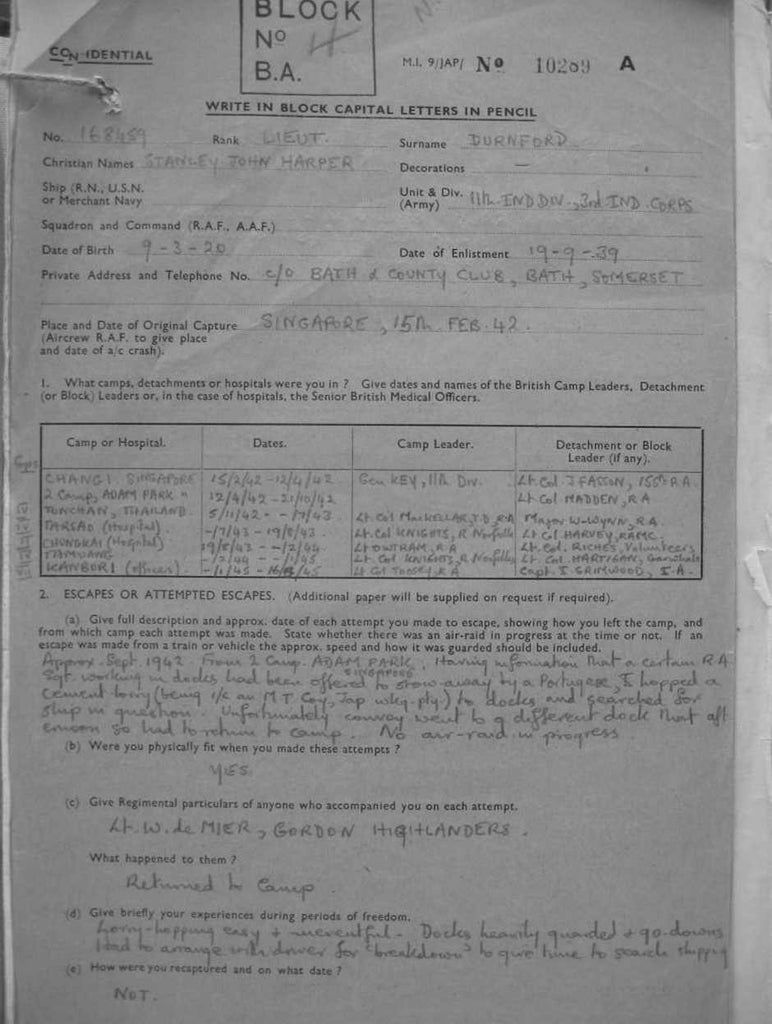 BLOCK
No 4
B.A.
CONFIDENTIAL
M.I. 9/JAP/ No 10289 A
WRITE IN BLOCK CAPITAL LETTERS IN PENCIL
No. 168459 Rank LIEUT. Surname DURNFORD
Christian Names STANLEY JOHN HARPER Decorations —
Ship (R.N., U.S.N. or Merchant Navy
Unit & Div. (Army) 11th IND DIV., 3rd IND CORPS
Squadron and Command (R.A.F., A.A.F.)
Date of Birth 9-3-20 Date of Enlistment 19-9-39
Private Address and Telephone No. c/o BATH & COUNTY CLUB, BATH, SOMERSET
Place and Date of Original Capture SINGAPORE, 15th FEB. 42.
(Aircrew R.A.F. to give place
and date of a/c crash).
1. What camps, detachments or hospitals were you in ? Give dates and names of the British Camp Leaders, Detachment
(or Block) Leaders or, in the case of hospitals, the Senior British Medical Officers.
Camp or Hospital. Dates. Camp Leader. Detachment or Block Leader (if any).
CHANGI SINGAPORE 15/2/42 - 12/4/42 Gen KEY, 11th Div. Lt. Col J FASSON, 155th R.A.
2 Camp, ADAM PARK " 12/4/42 - 21/10/42 Lt Col MADDEN, R A
TONCHAN, THAILAND 5/11/42 - -/7/43 Lt. Col MacKELLAR, T.D. R.A Major W-WYNN, R.A.
TARSAO (Hospital) -/7/43 - 19/8/43 Lt. Col KNIGHTS, R Norfolk Lt Col HARVEY, RAMC.
CHUNGKAI (Hospital) 19/8/43 - -/2/44 Lt OWTRAM, R.A Lt. Col. RICHES, Volunteers
TAMUANG -/2/44 - -/1/45 Lt Col KNIGHTS, R Norfolk Lt Col. HARTIGAN, Garwhals
KANBURI (officers) -/1/45 - 16/8/45 Lt Col TOOSEY, R A Capt. I GRIMWOOD, I.A.
2. ESCAPES OR ATTEMPTED ESCAPES. (Additional paper will be supplied on request if required).
(a) Give full description and approx. date of each attempt you made to escape, showing how you left the camp, and
from which camp each attempt was made. State whether there was an air-raid in progress at the time or not. If an
escape was made from a train or vehicle the approx. speed and how it was guarded should be included.
Approx. Sept. 1942 From 2 Camp. ADAM PARK, SINGAPORE Having information that a certain RA
Sgt. working in docks had been offered to stow-away by a Portugese, I hopped a
cement lorry (being i/c an M T Coy, Jap wkg-pty.) to docks and searched for
ship in question. Unfortunately convoy went to a different dock that aft
ernoon so had to return to camp. No air-raid in progress
(b) Were you physically fit when you made these attempts ?
YES.
(c) Give Regimental particulars of anyone who accompanied you on each attempt.
Lt. W. de MIER, GORDON HIGHLANDERS.
What happened to them ?
Returned to Camp.
(d) Give briefly your experiences during periods of freedom.
Lorry-hopping easy & uneventful. Docks heavily guarded & go-downs
Had to arrange with driver for "breakdown" to give time to search shipping
(e) How were you recaptured and on what date ?
NOT.